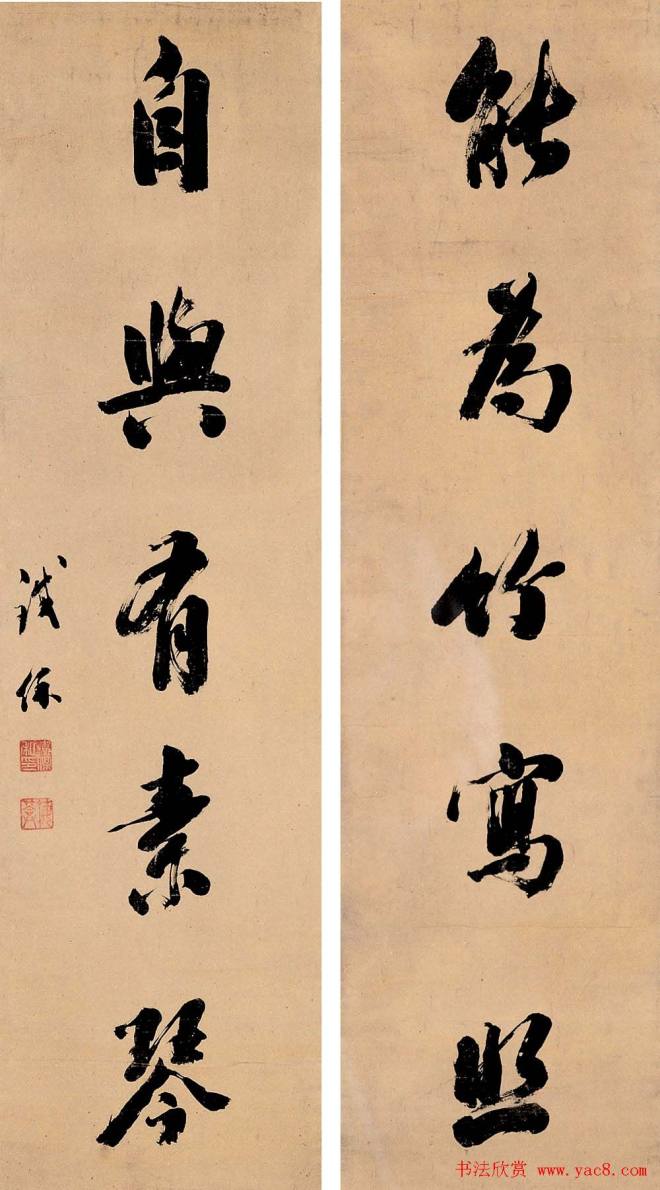 能為竹寫照
自與有素琴
鐵保
书法欣赏 www.yac8.com